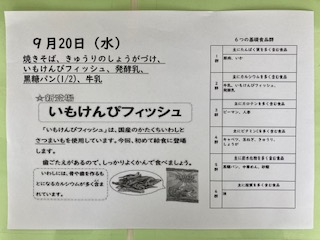 9月20日（水）
焼きそば、きゅうりのしょうがづけ、
いもけんぴフィッシュ、発酵乳、
黒糖パン(1/2)、牛乳
いもけんぴフィッシュ
「いもけんぴフィッシュ」は、国産のかたくちいわしと
さつまいもを使用しています。今回、初めて給食に登場
します。
歯ごたえがあるので、しっかりよくかんで食べましょう。
いわしには、骨や歯を作るも
とになるカルシウムが多く含ま
れています。
6つの基礎食品群
1群
主にたんぱく質を多く含む食品
豚肉、いか
2群
主にカルシウムを多く含む食品
牛乳、いもけんぴフィッシュ、
発酵乳
3群
主にカロテンを多く含む食品
ピーマン、人参
4群
主にビタミンCを多く含む食品
キャベツ、玉ねぎ、きゅうり、
しょうが
5群
主に炭水化物を多く含む食品
黒糖パン、中華めん、砂糖
6群
主に脂質を多く含む食品
油